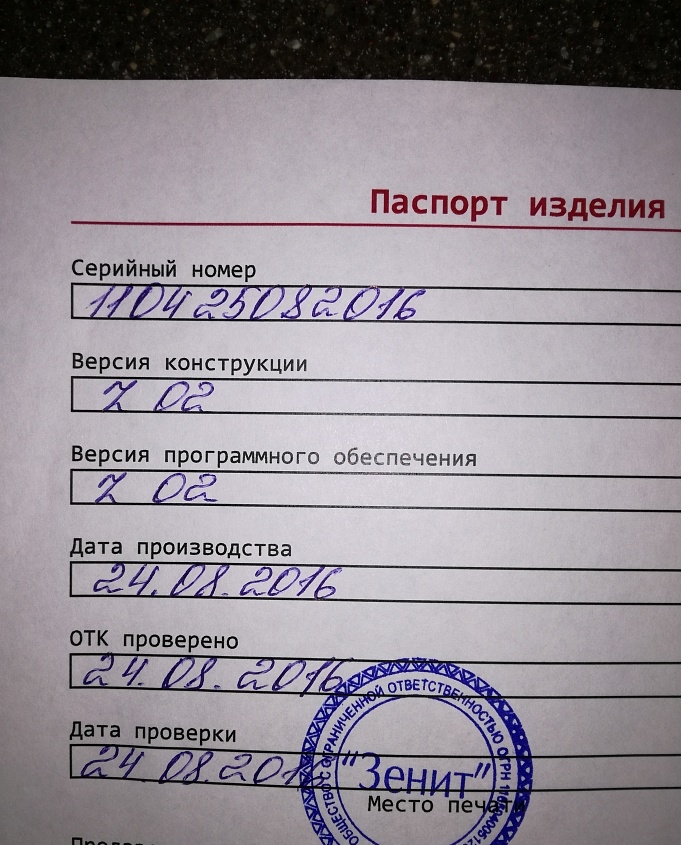 Паспорт изделия
Серийный номер
110425082016
Версия конструкции
Z 02
Версия программного обеспечения
Z 02
Дата производства
24.08.2016
ОТК проверено
24.08.2016
Дата проверки
24.08.2016
ОБЩЕСТВО С ОГРАНИЧЕННОЙ ОТВЕТСТВЕННОСТЬЮ ОГРН
"Зенит"
Место печати